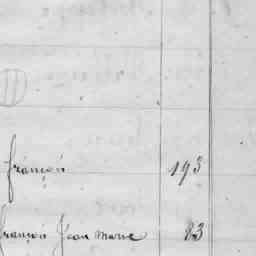 françois 193
françois Jean Marie 83